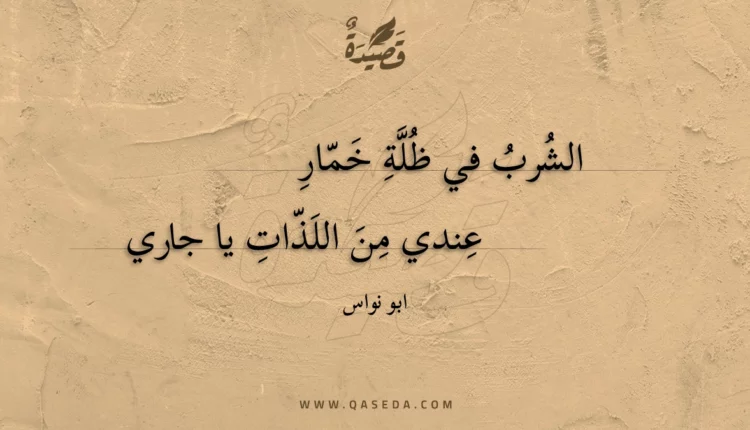 قَصِيْدَةٌ
الشُربُ في ظُلَّةِ خَمّارِ
عِندي مِنَ اللَذّاتِ يا جاري
ابو نواس
WWW.QASEDA.COM